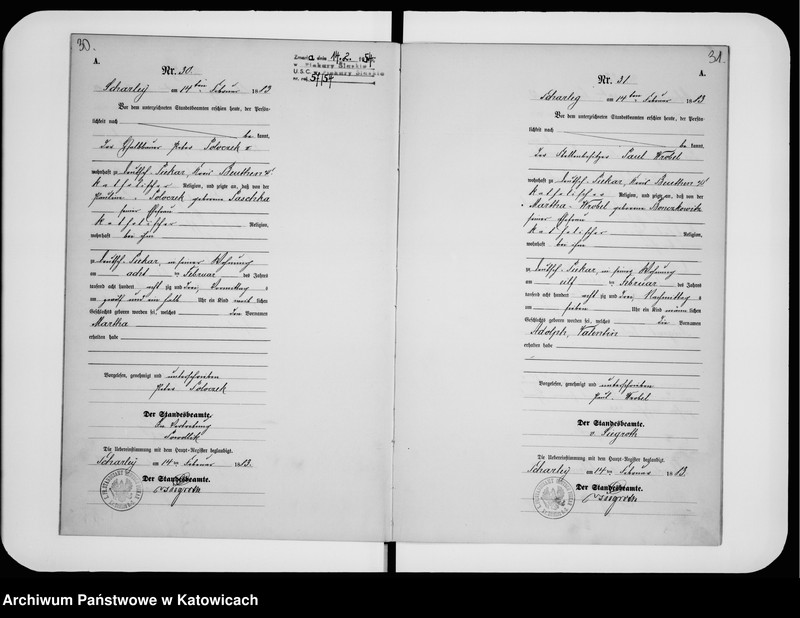 30.
A.
Nr. 30.
Zmarła dnia 14. 2. 1954
w Piekary Śląskie
U.S.C. Piekary Śląskie
nr. rej. 57/54
Scharley am 14ten Februar 1883
Vor dem unterzeichneten Standesbeamten erschien heute, der Persön-
lichkeit nach
be kannt,
der Peter Poloczek
wohnhaft zu Deutsch-Piekar, Kreis Beuthen
katholischer Religion, und zeigte an, daß von der
Pauline Poloczek geborene Paschka
seiner Ehefrau
katholischer Religion,
wohnhaft bei ihm
zu Deutsch-Piekar, in seiner Wohnung
am acht ten Februar des Jahres
tausend acht hundert acht zig und drei, Vormittag s
um zwölf und ein halb Uhr ein Kind weib lichen
Geschlechts geboren worden sei, welches den Vornamen
Martha
erhalten habe
Vorgelesen, genehmigt und unterschrieben
Peter Poloczek
Der Standesbeamte.
In Vertretung
Die Uebereinstimmung mit dem Haupt-Register beglaubigt.
Scharley am 14ten Februar 1883.
Der Standesbeamte.
31.
A.
Nr. 31
Scharley am 14ten Februar 1883
Vor dem unterzeichneten Standesbeamten erschien heute, der Persön-
lichkeit nach
be kannt,
der Stellenbesitzer Paul Wrobel
wohnhaft zu Deutsch-Piekar, Kreis Beuthen
katholischer Religion, und zeigte an, daß von der
Martha Wrobel geborene Bonczkowitz
seiner Ehefrau
katholischer Religion,
wohnhaft bei ihm
zu Deutsch-Piekar, in seiner Wohnung
am elf ten Februar des Jahres
tausend acht hundert acht zig und drei, Nachmittag s
um sieben Uhr ein Kind männ lichen
Geschlechts geboren worden sei, welches die Vornamen
Adolph, Valentin
erhalten habe
Vorgelesen, genehmigt und unterschrieben
Paul Wrobel
Der Standesbeamte.
v. Siegroth
Die Uebereinstimmung mit dem Haupt-Register beglaubigt.
Scharley am 14ten Februar 1883.
Der Standesbeamte.
v. Siegroth
Archiwum Państwowe w Katowicach